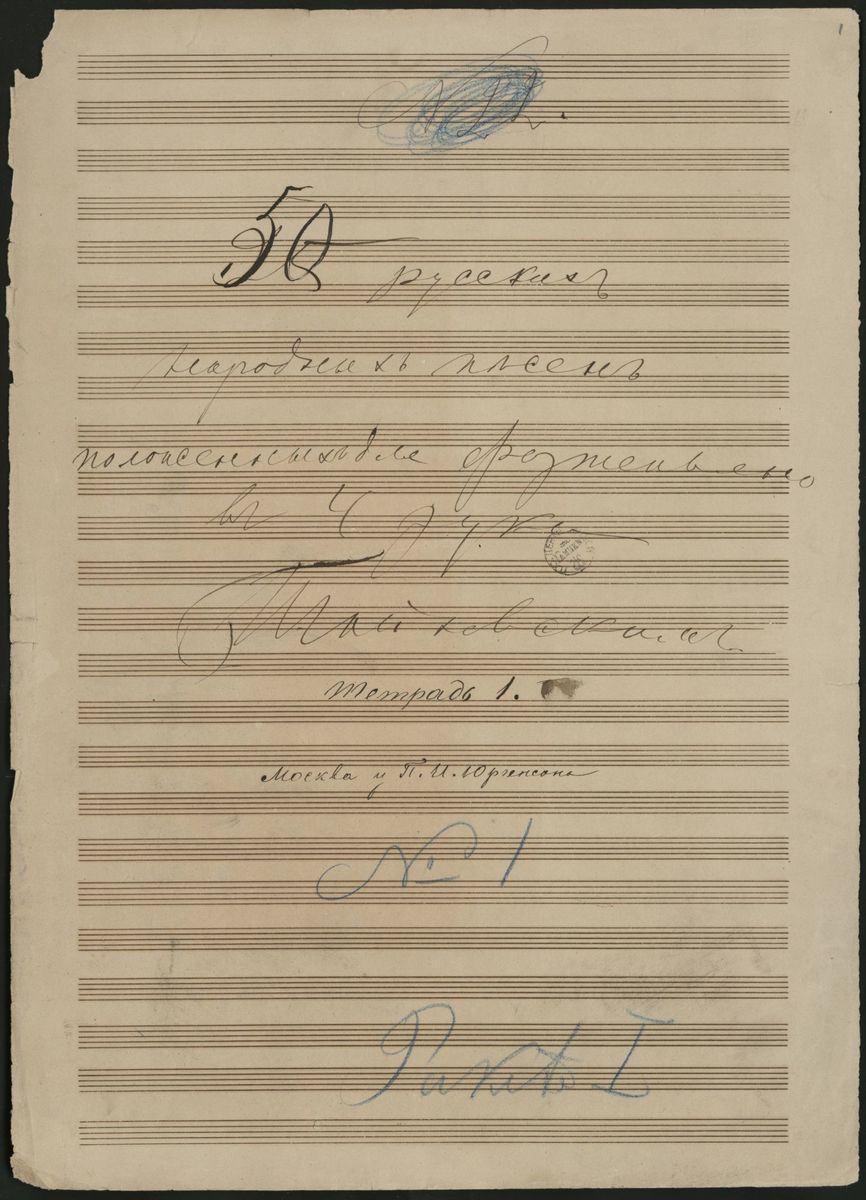 1
50 русскихъ
народныхъ пѣсенъ
положенныхъ для фортепьяно
въ 4 руки
Чайковскимъ
Тетрадь 1.
Москва у П. И. Юргенсона
№ 1
I